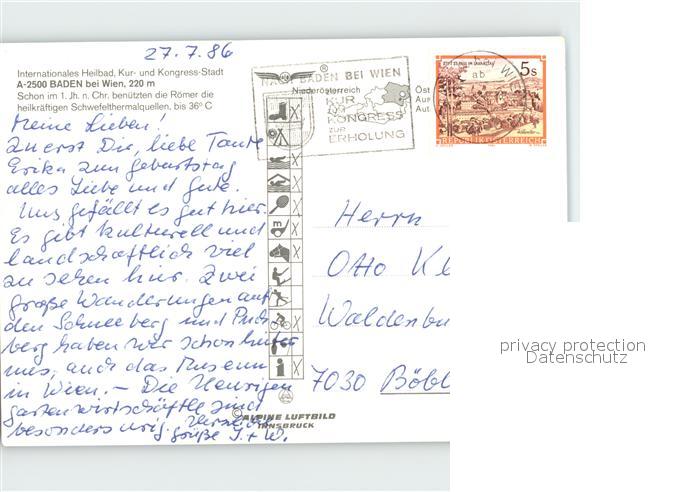 27.7.86
Internationales Heilbad, Kur- und Kongress-Stadt
A-2500 BADEN bei Wien, 220 m
Schon im 1. Jh. n. Chr. benützten die Römer die
heilkräftigen Schwefelthermalquellen, bis 36° C
BADEN BEI WIEN
Niederösterreich
KUR
KONGRESS
ZUR
ERHOLUNG
Öst
Aur
Aut
STIFT ST. PAUL IM LAVANTTAL
5s
REPUBLIK ÖSTERREICH
Meine Lieben!
Zu erst Dir, liebe Tante
Erika zum Geburtstag
alles Liebe und Gute.
Uns gefällt es gut hier.
Es gibt kulturell und
landschaftlich viel
zu sehen hier. Zwei
große Wanderungen auf
den Schneeberg und Puch-
berg haben wir schon hinter
uns, auch das Museum
in Wien. – Die Heurigen
gartenwirtschäftle sind
besonders urig. Herzliche
Grüße I. + W.
Herrn
Otto Kl
Waldenbu
7030 Böbl
© ALPINE LUFTBILD
INNSBRUCK
privacy protection
Datenschutz